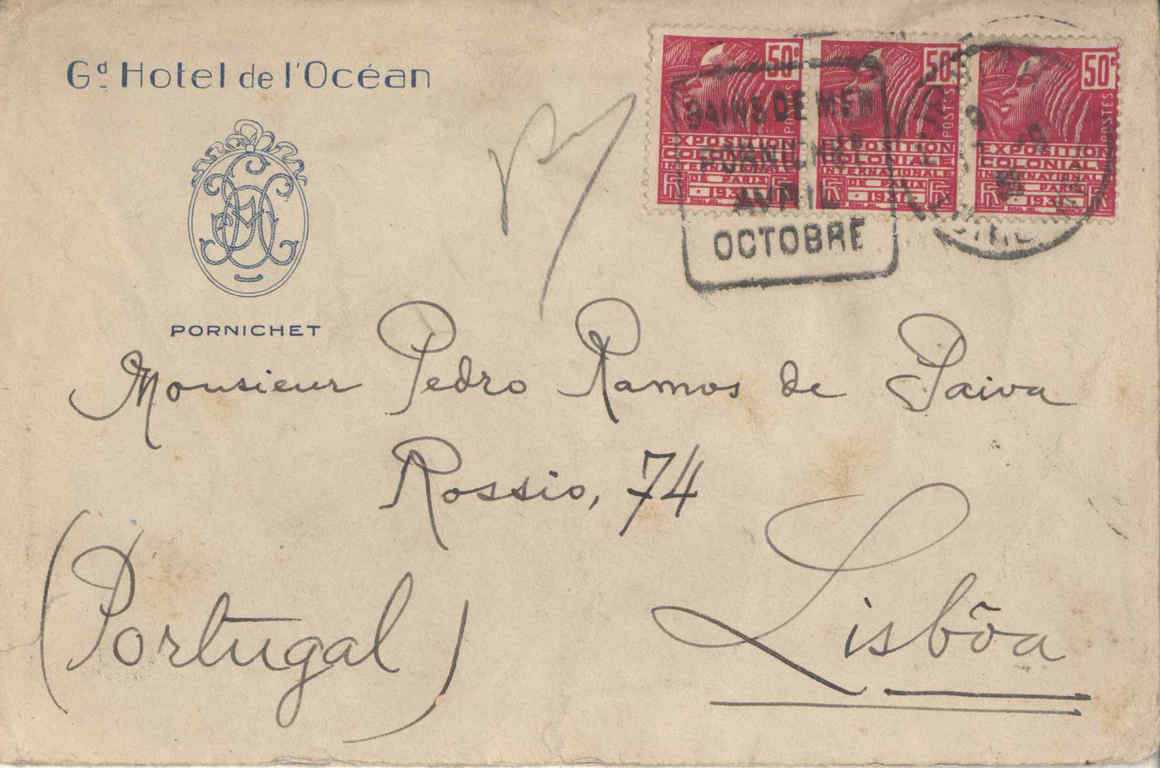 Gd Hotel de l'Océan
PORNICHET
50c
POSTES
EXPOSITION
COLONIALE
INTERNATIONALE
DE PARIS
1931
RF
50c
POSTES
EXPOSITION
COLONIALE
INTERNATIONALE
DE PARIS
1931
RF
50c
POSTES
EXPOSITION
COLONIALE
INTERNATIONALE
DE PARIS
1931
RF
BAINS DE MER
PORNICHET
AVRIL
OCTOBRE
Monsieur Pedro Ramos de Paiva
Rossio, 74
Lisbôa
(Portugal)